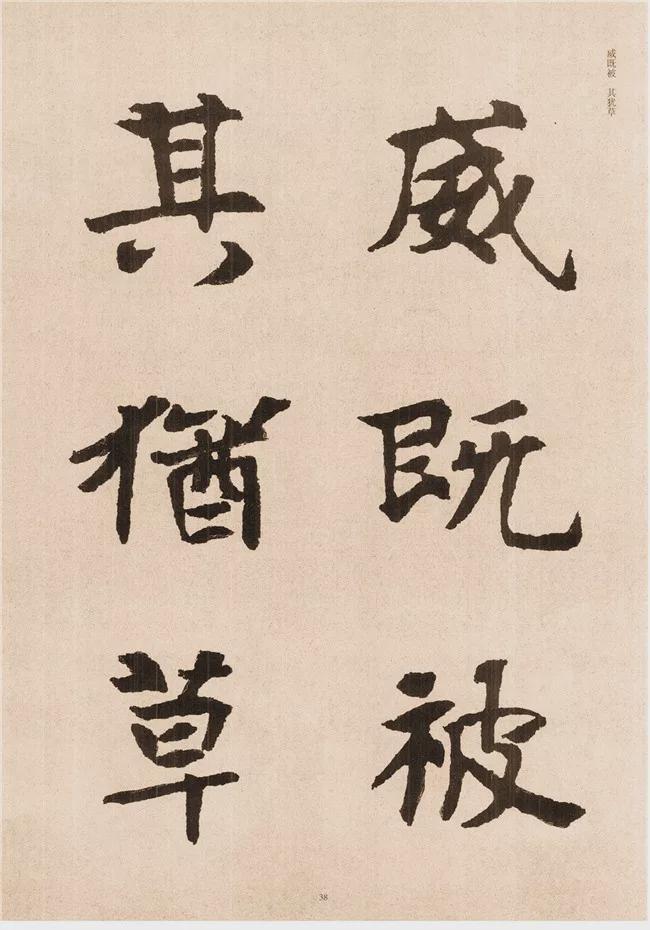 威既被 其犹草
威既被
其猶草
38